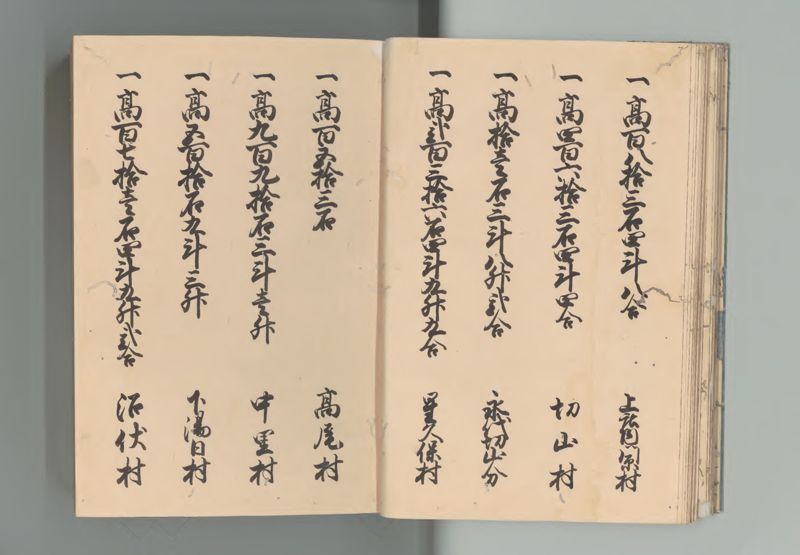 一 高百八拾三石四斗八合
上
一 高四百六拾三石四斗四合
切山村
一 高拾壱石三斗八升弐合
永代切山分
一 高弐百三拾六石四斗九升九合
星久保村
一 高百五拾三石
高尾村
一 高九百九拾石三斗壱升
中里村
一 高五百拾石九斗三升
下湯日村
一 高百七拾壱石四斗九升弐合
沼伏村